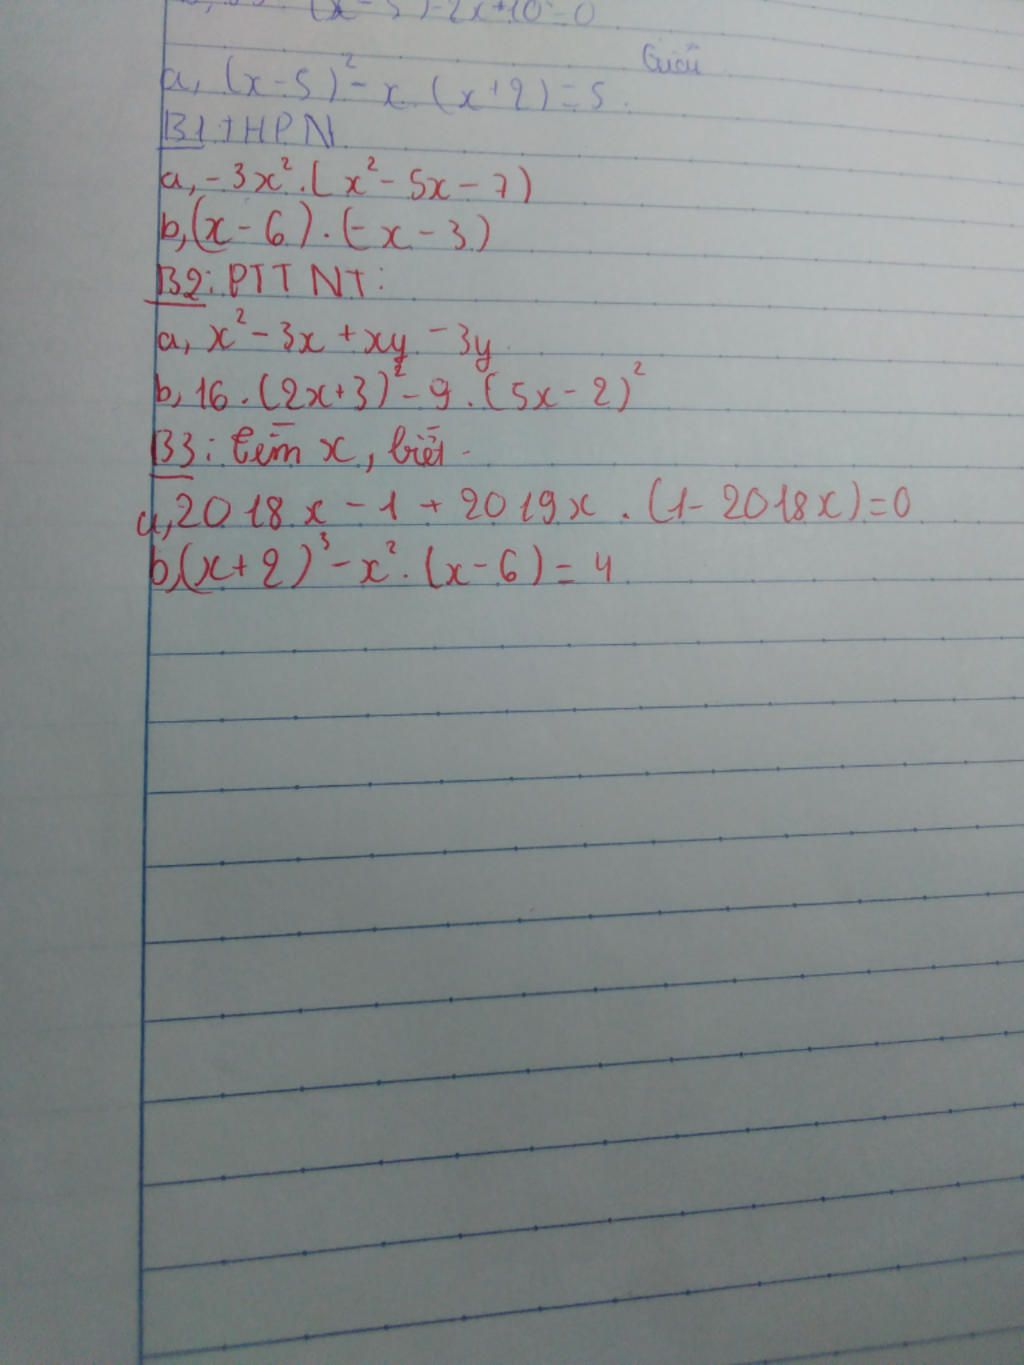 (x-5)-2x+10=0
Giải
a, (x-5)²-x.(x+2)=5.
B1 THPN
a, -3x².(x²-5x-7)
b, (x-6).(-x-3)
B2: PTTNT:
a, x²-3x+xy-3y
b, 16.(2x+3)²-9.(5x-2)²
B3: tìm x, biết.
a, 2018x-1+2019x.(1-2018x)=0
b, (x+2)³-x².(x-6)=4